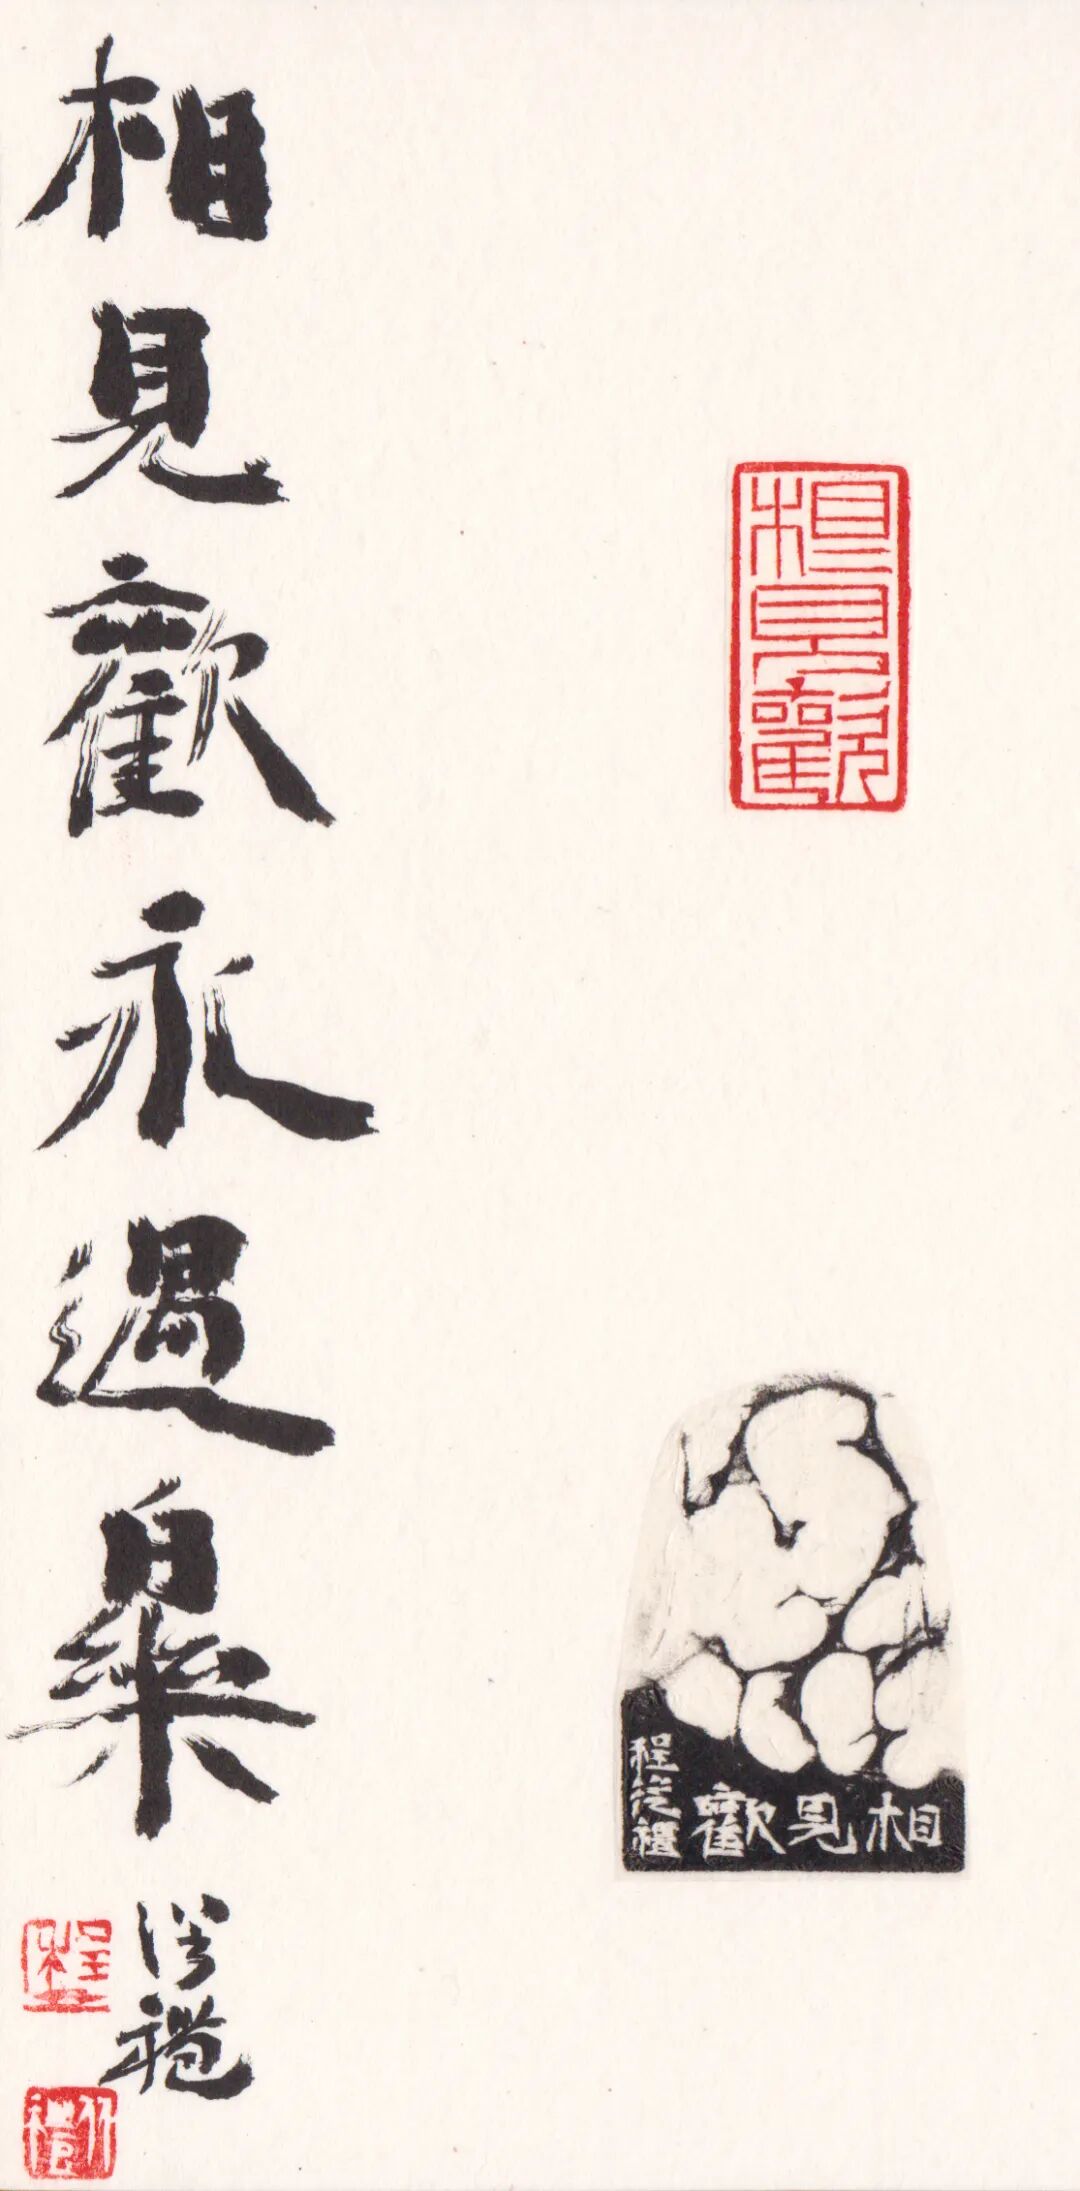 相見歡
相見歡
程從禮
相見歡永遇樂
從禮
程